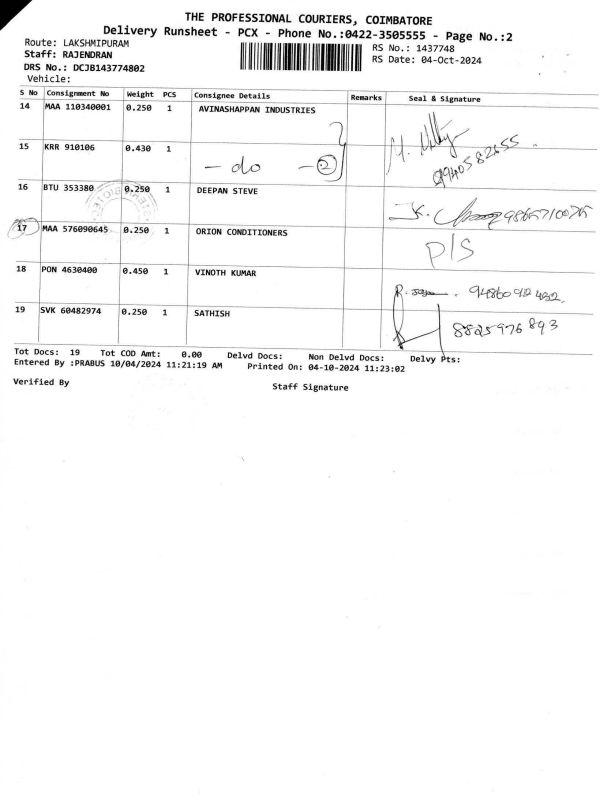 THE PROFESSIONAL COURIERS, COIMBATORE
Delivery Runsheet - PCX - Phone No.:0422-3505555 - Page No.:2
Route: LAKSHMIPURAM
Staff: RAJENDRAN
DRS No.: DCJB143774802
Vehicle:
RS No.: 1437748
RS Date: 04-Oct-2024
S No Consignment No Weight PCS Consignee Details Remarks Seal & Signature
14 MAA 110340001 0.250 1 AVINASHAPPAN INDUSTRIES
15 KRR 910106 0.430 1 - do - 2
9940582655
16 BTU 353380 0.250 1 DEEPAN STEVE
17 MAA 576090645 0.250 1 ORION CONDITIONERS P/S
18 PON 4630400 0.450 1 VINOTH KUMAR
19 SVK 60482974 0.250 1 SATHISH 8825976893
Tot Docs: 19 Tot COD Amt: 0.00 Delvd Docs: Non Delvd Docs: Delvy Pts:
Entered By :PRABUS 10/04/2024 11:21:19 AM Printed On: 04-10-2024 11:23:02
Verified By
Staff Signature